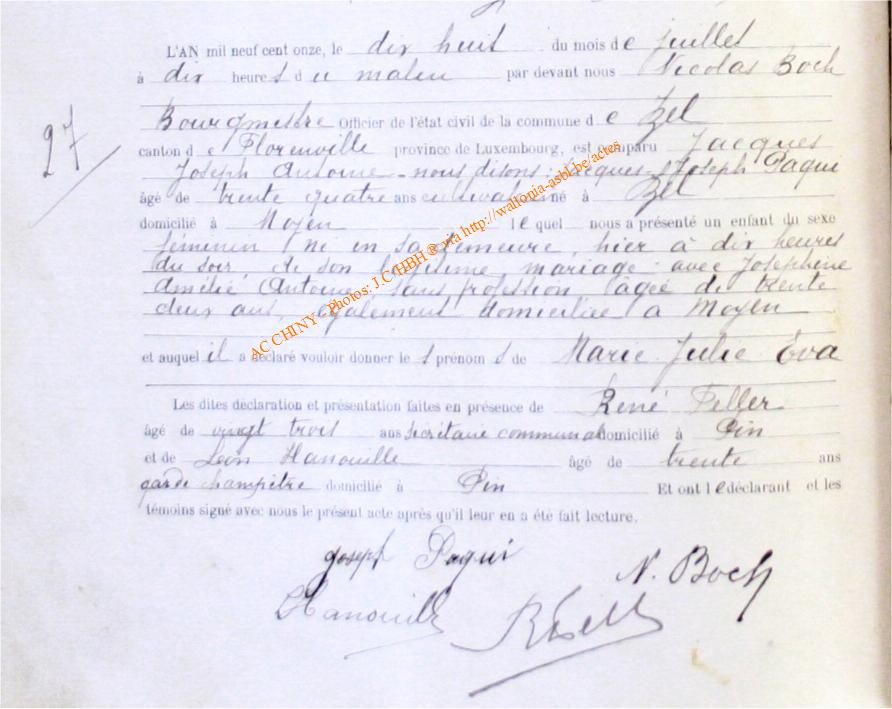 L'AN mil neuf cent onze, le dix huit du mois de juillet
à dix heures du matin par devant nous Nicolas Boch
Bourgmestre Officier de l'état civil de la commune de Izel
27
canton de Florenville province de Luxembourg, est comparu Jacques
Joseph Antoine - nous disons: Jacques Joseph Paqui
âgé de trente quatre ans cultivateur né à Izel
domicilié à Moyen lequel nous a présenté un enfant du sexe
féminin né en sa demeure, hier à dix heures
du soir, de son légitime mariage avec Joséphine
Amélie Antoine, sans profession, âgée de trente
deux ans, également domiciliée à Moyen
et auquel il a déclaré vouloir donner les prénoms de Marie Julie Eva
Les dites déclaration et présentation faites en présence de René Feller
âgé de vingt trois ans secrétaire communal domicilié à Pin
et de Léon Hanouille âgé de trente ans
garde champêtre domicilié à Pin Et ont le déclarant et les
témoins signé avec nous le présent acte après qu'il leur en a été fait lecture.
Joseph Paqui
N. Boch
LHanouille
RFeller
AC CHINY - Photos: J.C/HBH ® via http://wallonia-asbl.be/actes